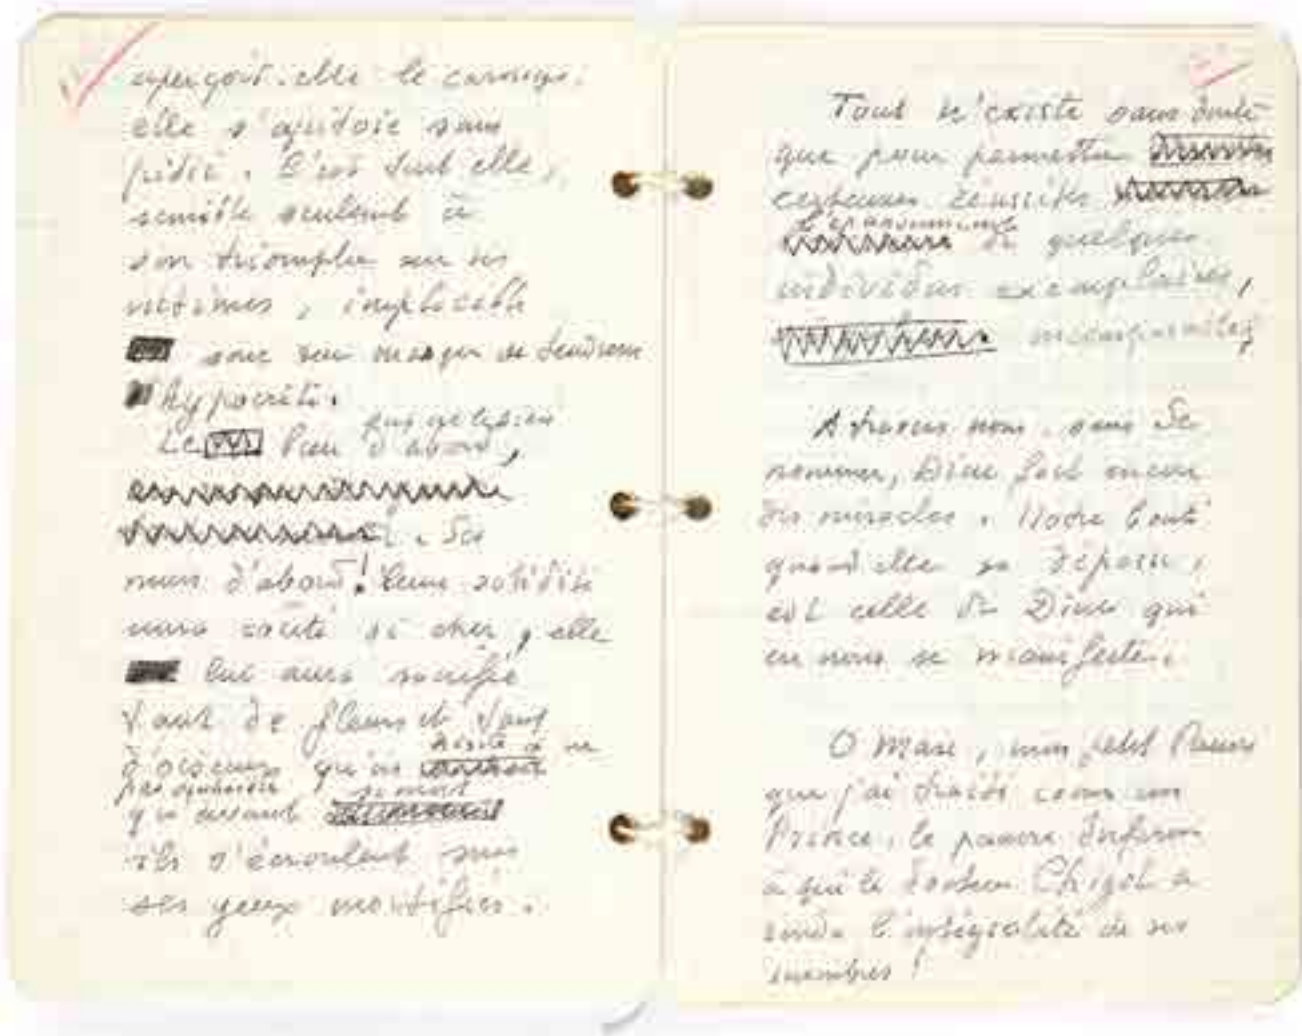 aperçoit-elle le carnage.
elle s'apitoie sans
pitié. C'est tout elle,
semble seulement à
son triomphe sur ses
victimes, implacable
sous son masque de tendresse
hypocrite.
Le lieu d'abord,
. Ses
murs d'abord! Leur solidité
aura coûté si cher, elle
lui aura sacrifié
tant de fleurs et tant
hésité à
d'oiseaux qu'on ne
pas
qu'avant
ils s'écroulent sous
ses yeux mortifiés.
Tout n'existe sans doute
que pour permettre
certaines réussites
de quelques
individus exemplaires,
A travers nous, sans se
nommer, Dieu fait encore
des miracles. Notre bonté
quand elle se dépasse,
est celle de Dieu qui
en nous se manifeste.
O Marc, mon petit Pauvre
que j'ai traité comme un
Prince, le pauvre Infirme
à qui le docteur a
rendu l'intégralité de ses
membres!